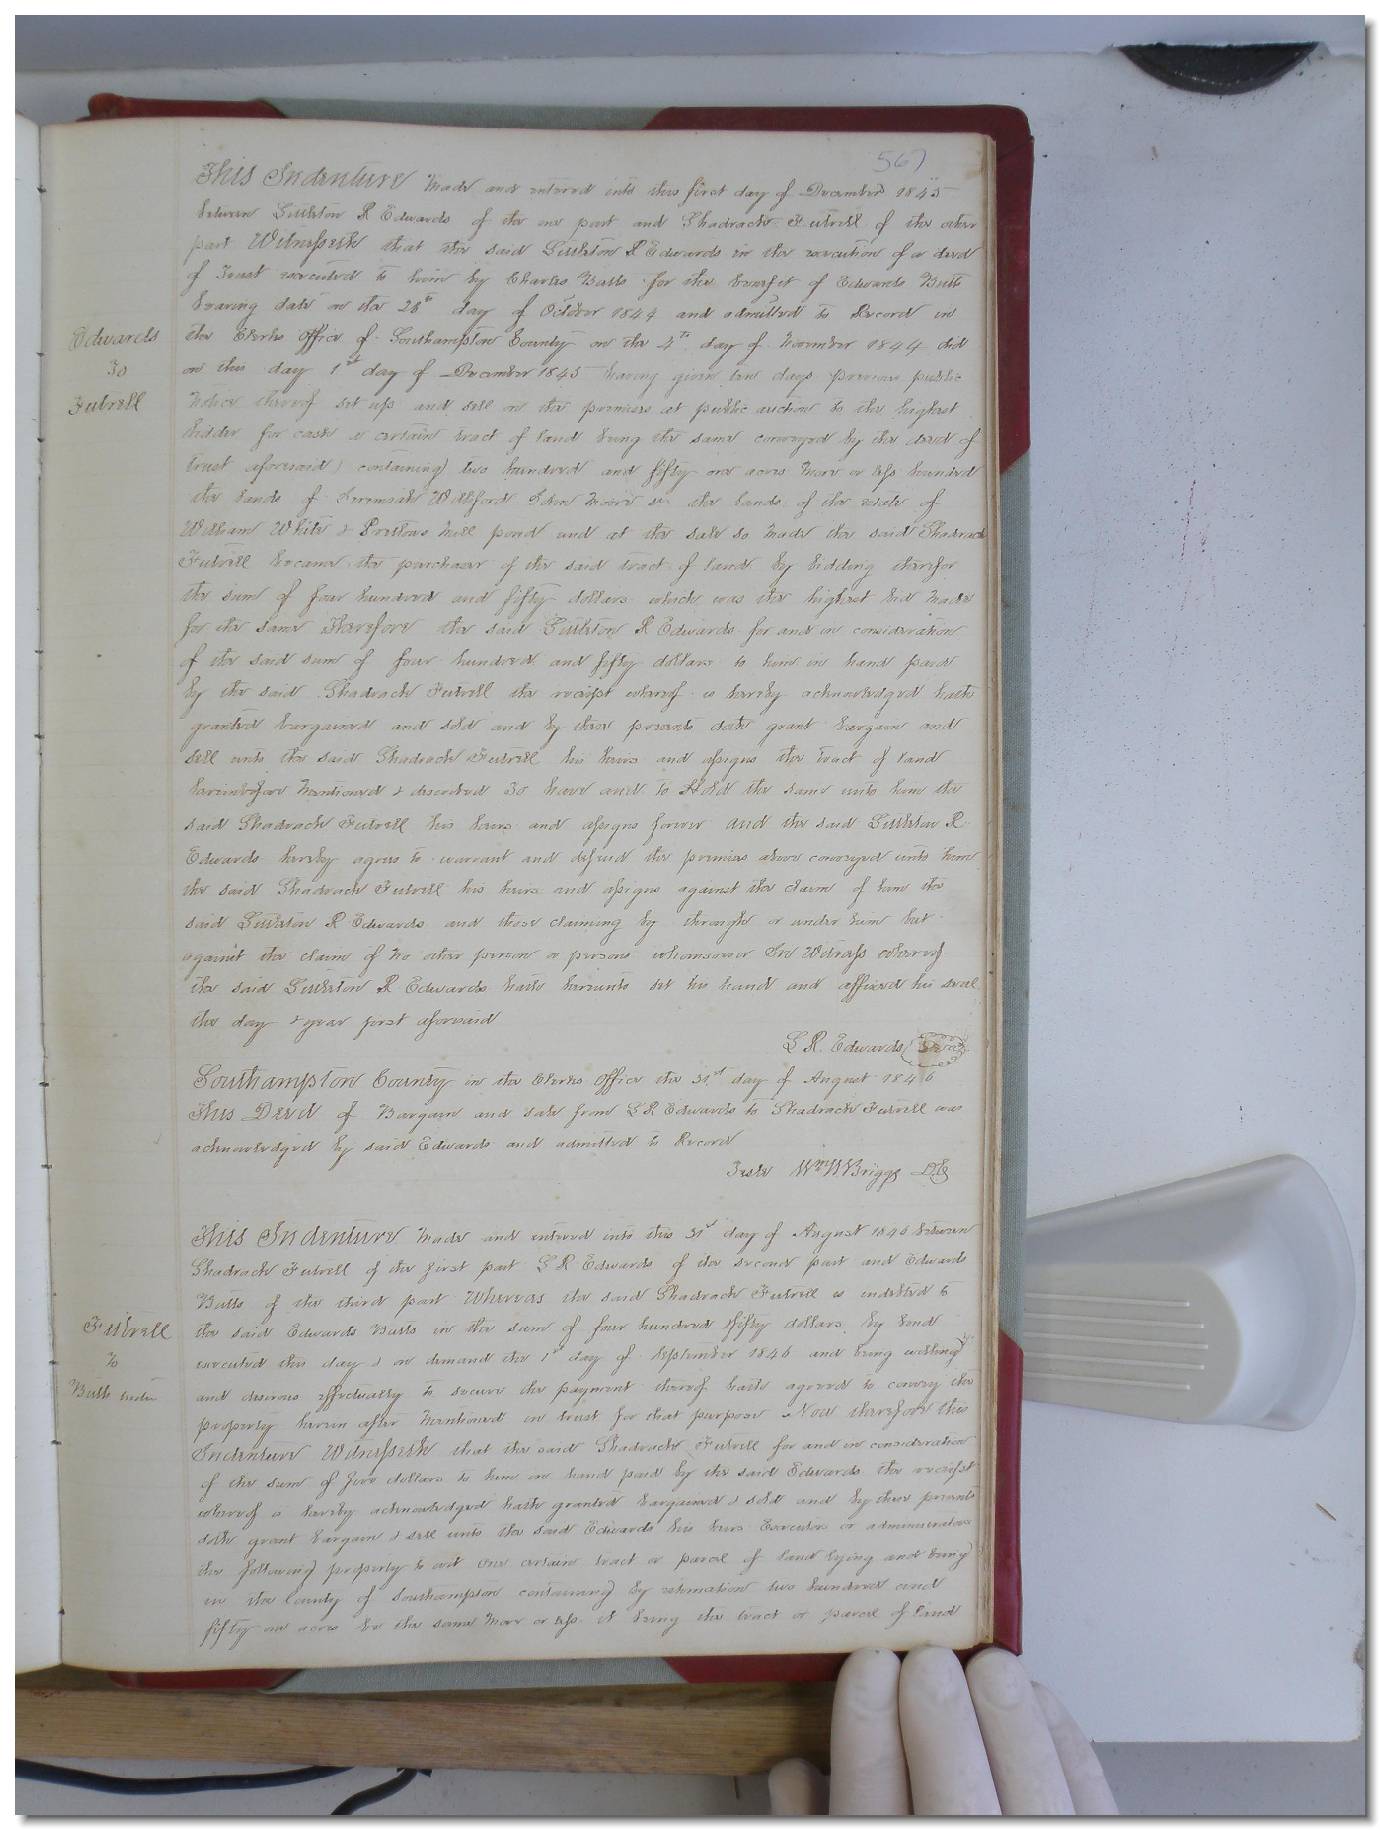 567
This Indenture Made and entered into this first day of December 1845
between Littleton R Edwards of the one part and Shadrach Futrell of the other
part Witnesseth that the said Littleton R Edwards in the execution of a deed
of Trust executed to him by Charles Butts for the benefit of Edwards Butts
bearing date on the 28th day of October 1844 and admitted to Record in
the Clerks Office of Southampton County on the 4th day of November 1844 did
on this day 1st day of December 1845 having given ten days previous public
Notice thereof set up and sell on the premises at public auction to the highest
bidder for cash a certain tract of land being the same conveyed by the deed of
trust aforesaid containing two hundred and fifty one acres more or less bounded
the lands of Jeremiah Wellford the lands of the estate of
William White & Prestons Mill pond and at the sale so made the said Shadrach
Futrell became the purchaser of the said tract of land by bidding therefor
the sum of four hundred and fifty dollars which was the highest bid made
for the same Therefore the said Littleton R Edwards for and in consideration
of the said sum of four hundred and fifty dollars to him in hand paid
by the said Shadrach Futrell the receipt whereof is hereby acknowledged hath
granted bargained and sold and by these presents doth grant bargain and
sell unto the said Shadrach Futrell his heirs and assigns the tract of land
hereinbefore mentioned & described To have and to Hold the same unto him the
said Shadrach Futrell his heirs and assigns forever and the said Littleton R
Edwards hereby agrees to warrant and defend the premises above conveyed unto him
the said Shadrach Futrell his heirs and assigns against the claim of him the
said Littleton R Edwards and those claiming by through or under him but
against the claim of no other person or persons whomsoever In Witness whereof
the said Littleton R Edwards hath hereunto set his hand and affixed his seal
the day & year first aforesaid
L R. Edwards Seal
Edwards
To
Futrell
Southampton County in the Clerks Office the 31st day of August 1846
This Deed of Bargain and sale from L R Edwards to Shadrach Futrell was
acknowledged by said Edwards and admitted to Record
Teste Wm W Briggs DC
This Indenture Made and entered into this 31st day of August 1846 between
Shadrach Futrell of the first part L R Edwards of the second part and Edwards
Butts of the third part Whereas the said Shadrach Futrell is indebted to
the said Edwards Butts in the sum of four hundred & fifty dollars by bond
executed this day & on demand the 1st day of September 1846 and being willing
and desirous effectually to secure the payment thereof hath agreed to convey the
property herein after mentioned in trust for that purpose Now therefore this
Indenture Witnesseth that the said Shadrach Futrell for and in consideration
of the sum of five dollars to him in hand paid by the said Edwards the receipt
whereof is hereby acknowledged hath granted bargained & sold and by these presents
doth grant bargain & sell unto the said Edwards his heirs Executors or administrators
the following property to wit one certain tract or parcel of land lying and being
in the County of Southampton containing by estimation two hundred and
fifty one acres be the same more or less it being the tract or parcel of land
Futrell
to
Butts